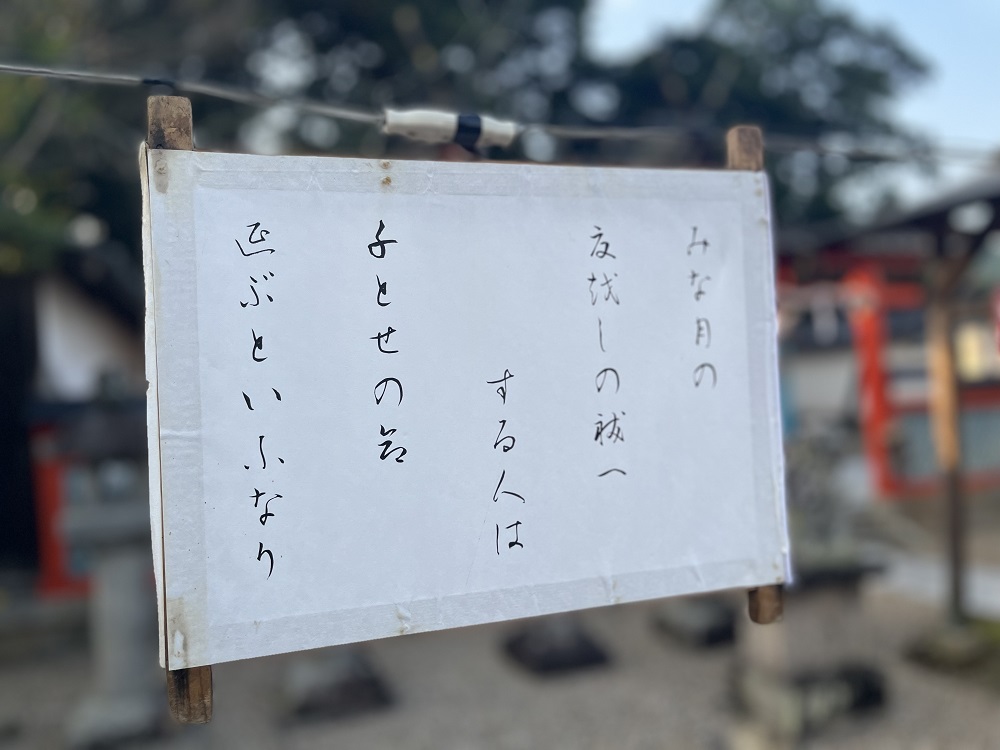 みな月の
夏越しの祓へ
する人は
千とせの命
延ぶといふなり